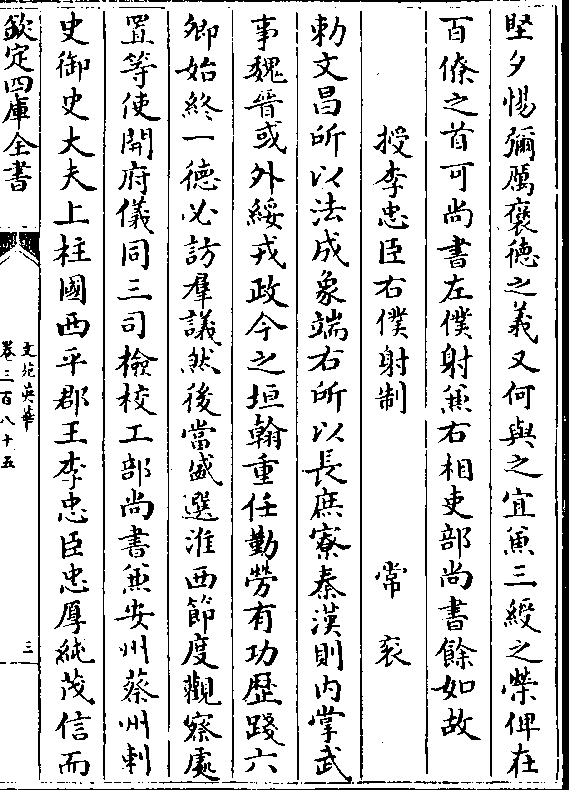 堅夕惕彌厲褒德之義又何與之宜兼三綬之榮俾在
百僚之首可尚書左僕射兼右相吏部尚書餘如故
授李忠臣右僕射制 常衮
勅文昌所以法成象端右所以長庶寮秦漢則内掌武
事魏晉或外綏戎政今之垣翰重任勤勞有功歴踐六
卿始終一德必訪羣議然後當盛選淮西節度觀察處
置等使開府儀同三司檢校工部尚書兼安州蔡州刺
史御史大夫上柱國西平郡王李忠臣忠厚純茂信而
欽定四庫全書
文苑英華
卷三百八十五
三